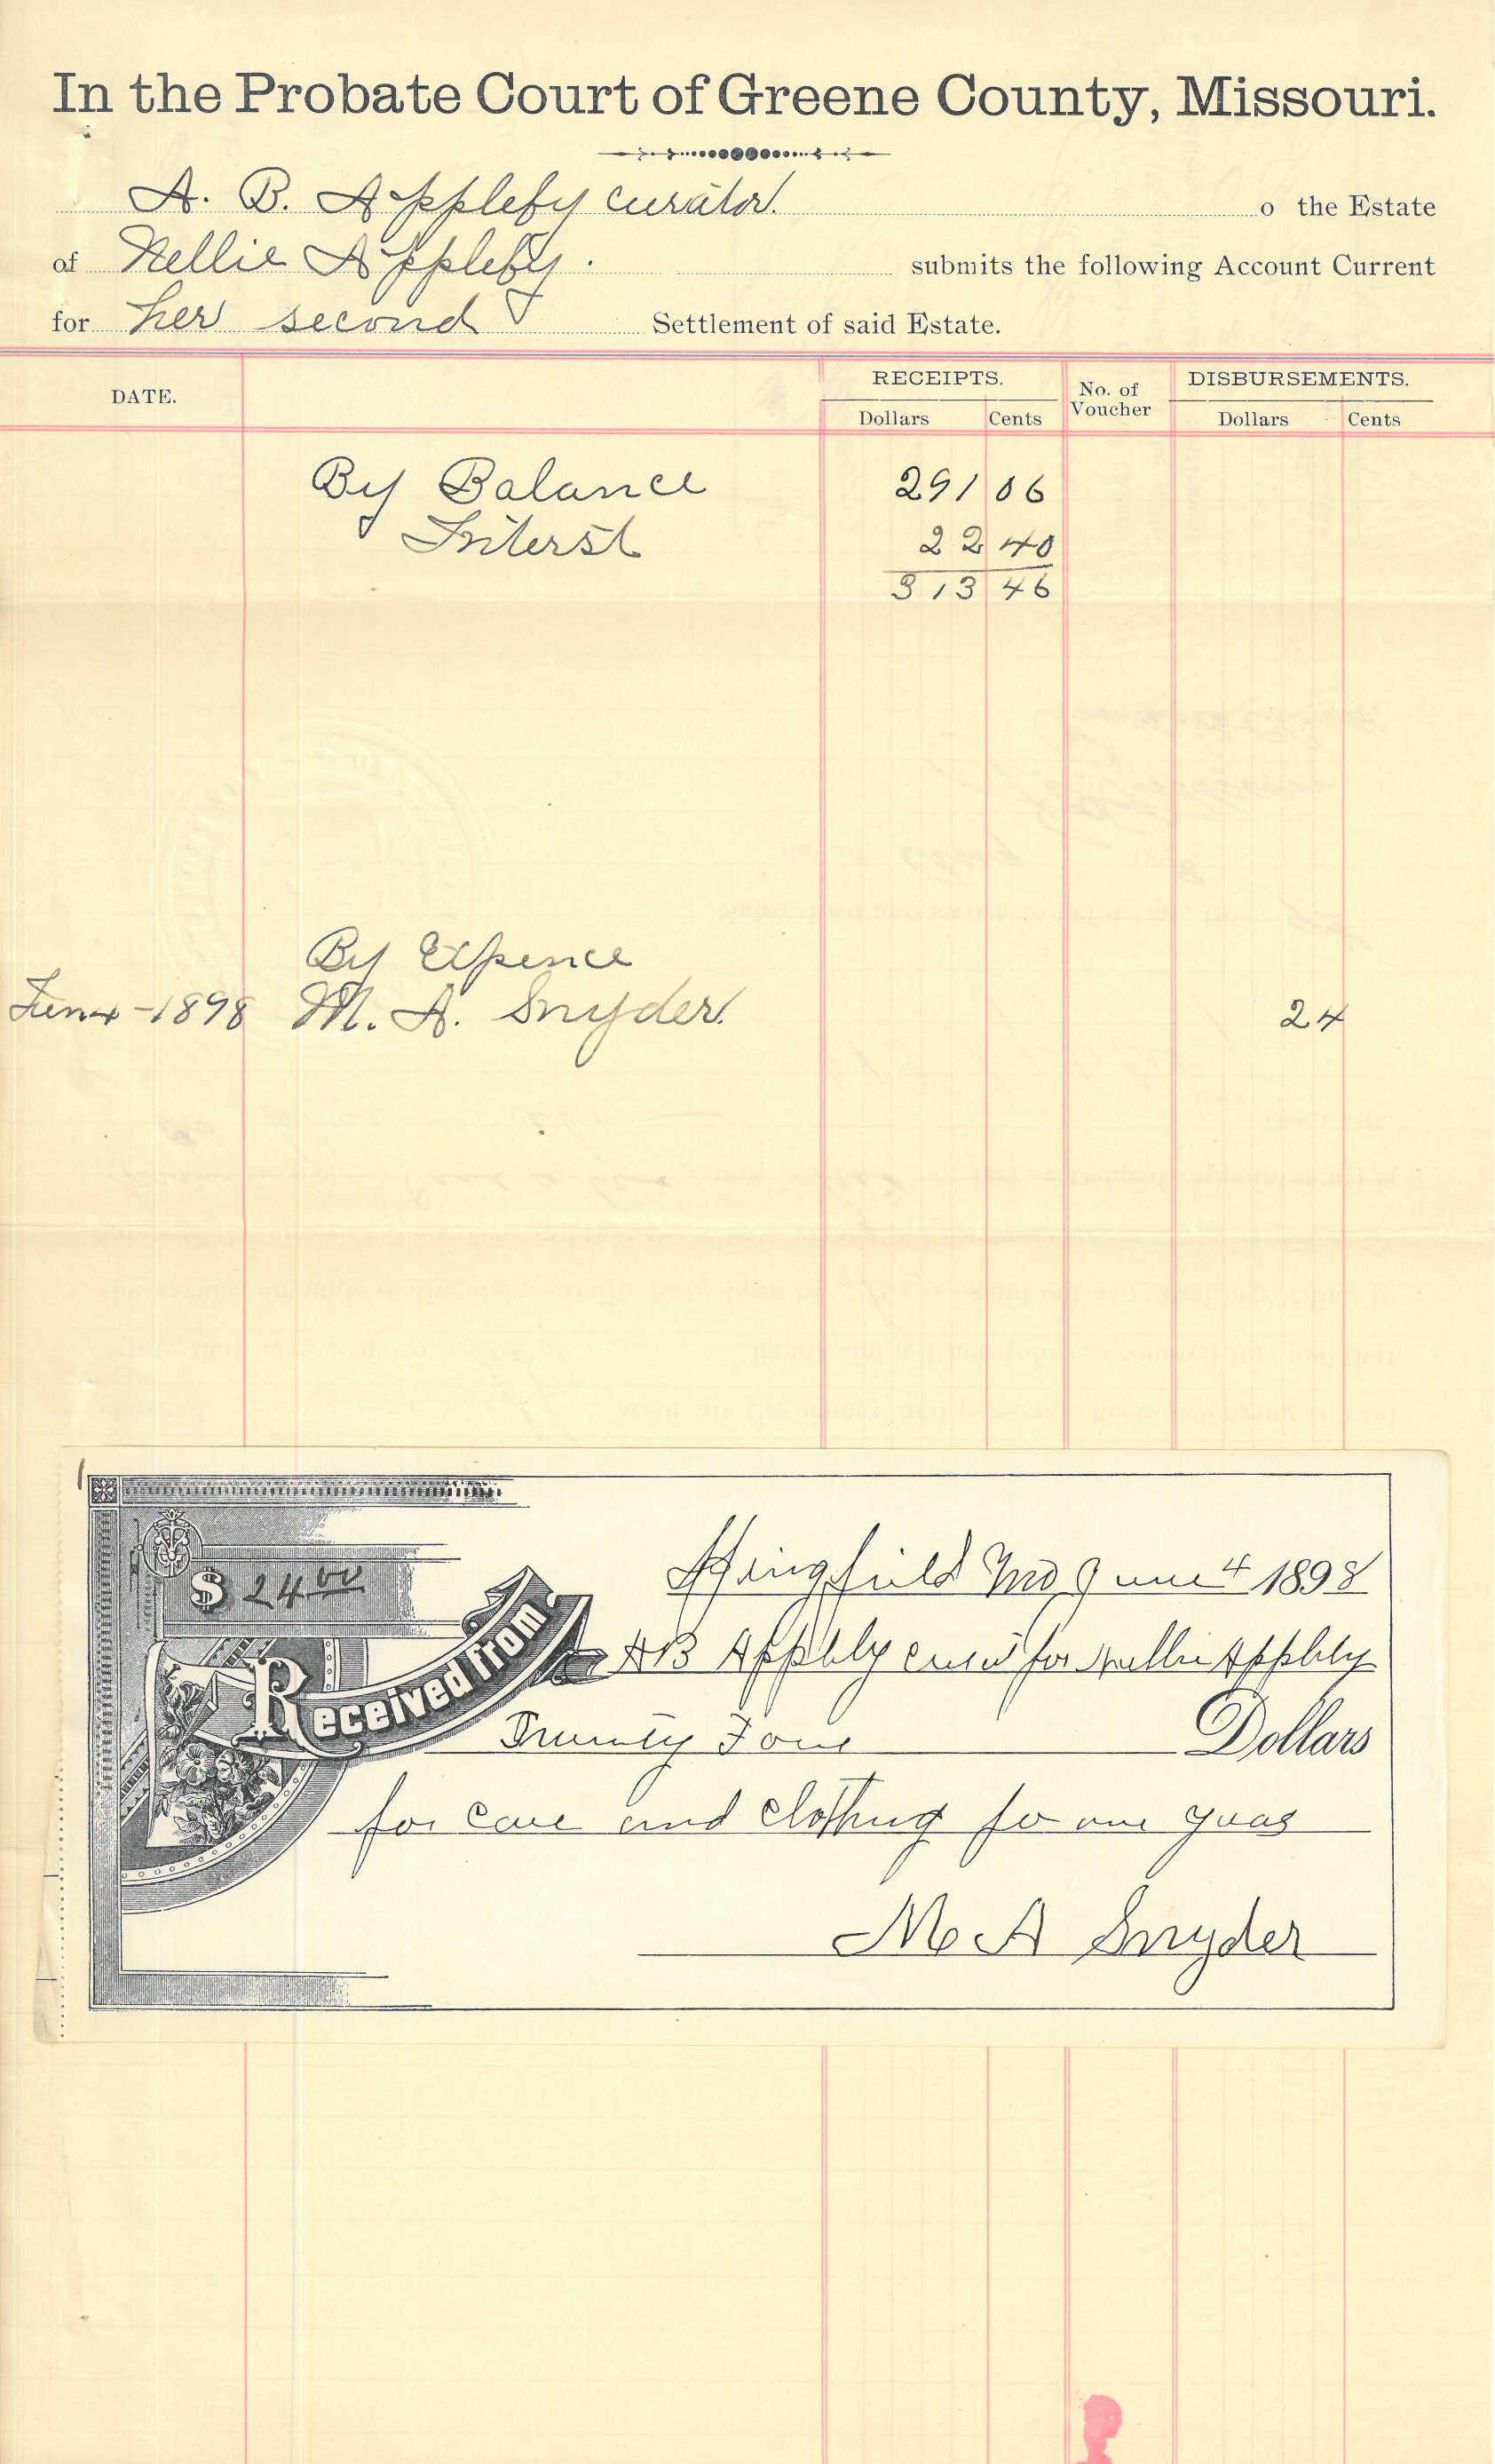 In the Probate Court of Greene County, Missouri.
A. B. Appleby curator. o the Estate
of Nellie Appleby. submits the following Account Current
for her second Settlement of said Estate.
DATE. RECEIPTS. No. of Voucher DISBURSEMENTS.
Dollars Cents Dollars Cents
By Balance 291 06
Interst 22 40
313 46
By Expence
Jun 4-1898 M. A. Snyder. 24
1
$ 24 00
Springfield Mo June 4 1898
Received from AB Appleby for Nellie Appleby
Twenty Four Dollars
for care and clothing for one year
M A Snyder